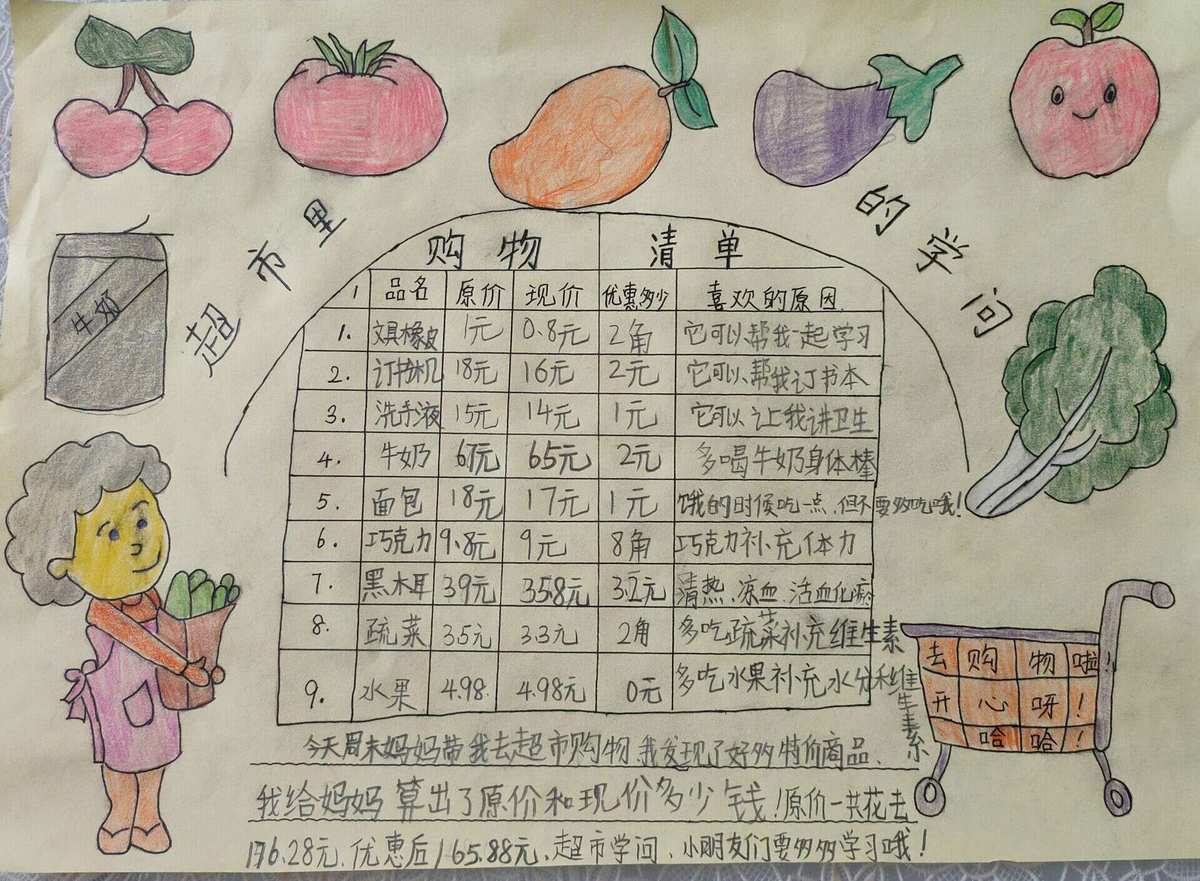 超市里的学问
牛奶
购物清单
1 品名 原价 现价 优惠多少 喜欢的原因.
1. 文具橡皮 1元 0.8元 2角 它可以帮我一起学习
2. 订书机 18元 16元 2元 它可以帮我订书本
3. 洗手液 15元 14元 1元 它可以让我讲卫生
4. 牛奶 67元 65元 2元 多喝牛奶身体棒
5. 面包 18元 17元 1元 饿的时候吃一点,但不要多吃哦!
6. 巧克力 9.8元 9元 8角 巧克力补充体力
7. 黑木耳 39元 35.8元 3.2元 清热、凉血、活血化瘀
8. 蔬菜 3.5元 3.3元 2角 多吃蔬菜补充维生素
9. 水果 4.98. 4.98元 0元 多吃水果补充水分和维生素
去购物啦!
开心呀!
哈哈!
今天周末妈妈带我去超市购物.我发现了好多特价商品.
我给妈妈算出了原价和现价多少钱!原价一共花去
176.28元.优惠后165.88元.超市学问.小朋友们要多多学习哦!